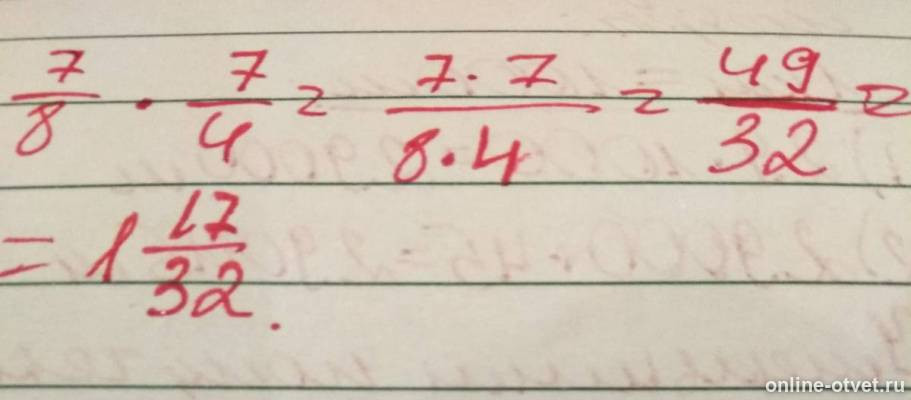 7/8 · 7/4 = 7·7/8·4 = 49/32 =
= 1 17/32.
online-otvet.ru